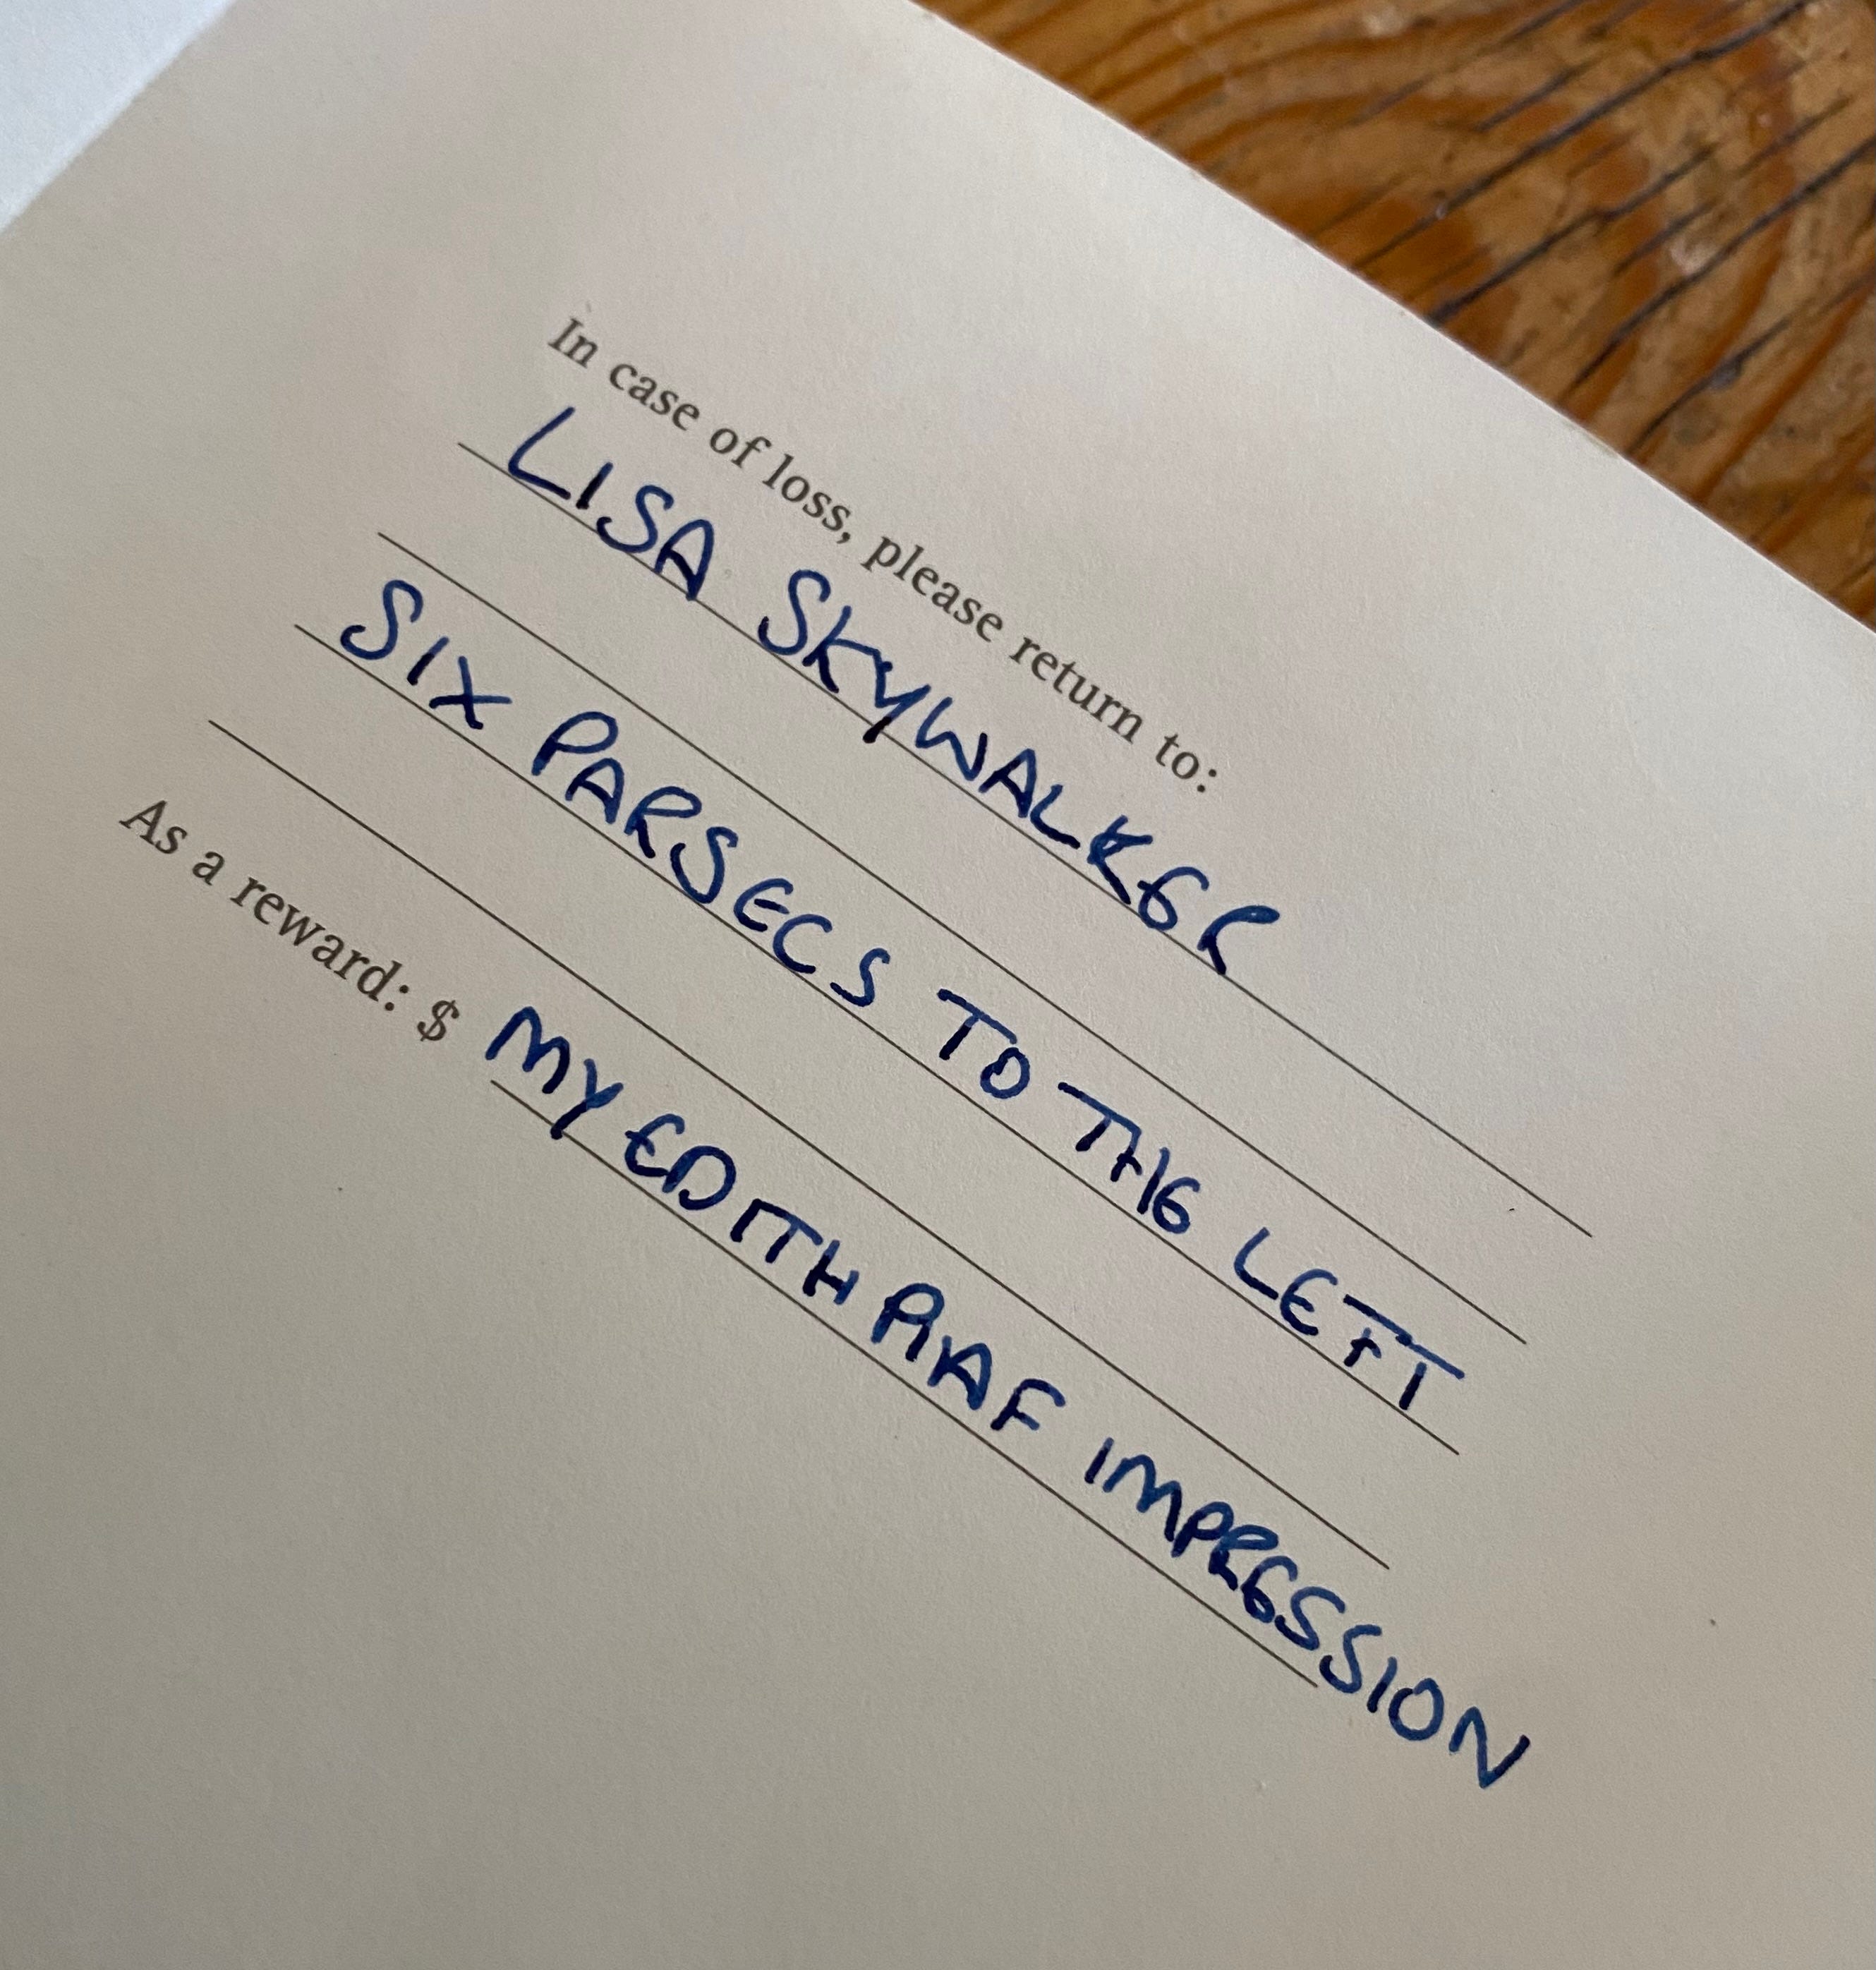 In case of loss, please return to:
LISA SKYWALKER
SIX PARSECS TO THE LEFT
As a reward: $ MY EDITH PIAF IMPRESSION